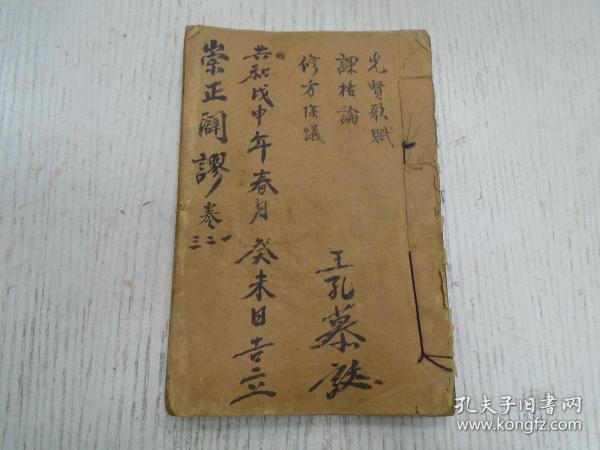 先賢歌賦
課格論
修方條議
共和戊申年春月癸未日吉立
王孔慕誌
崇正闢謬卷一二三
孔夫子旧书网
www.kongfz.com